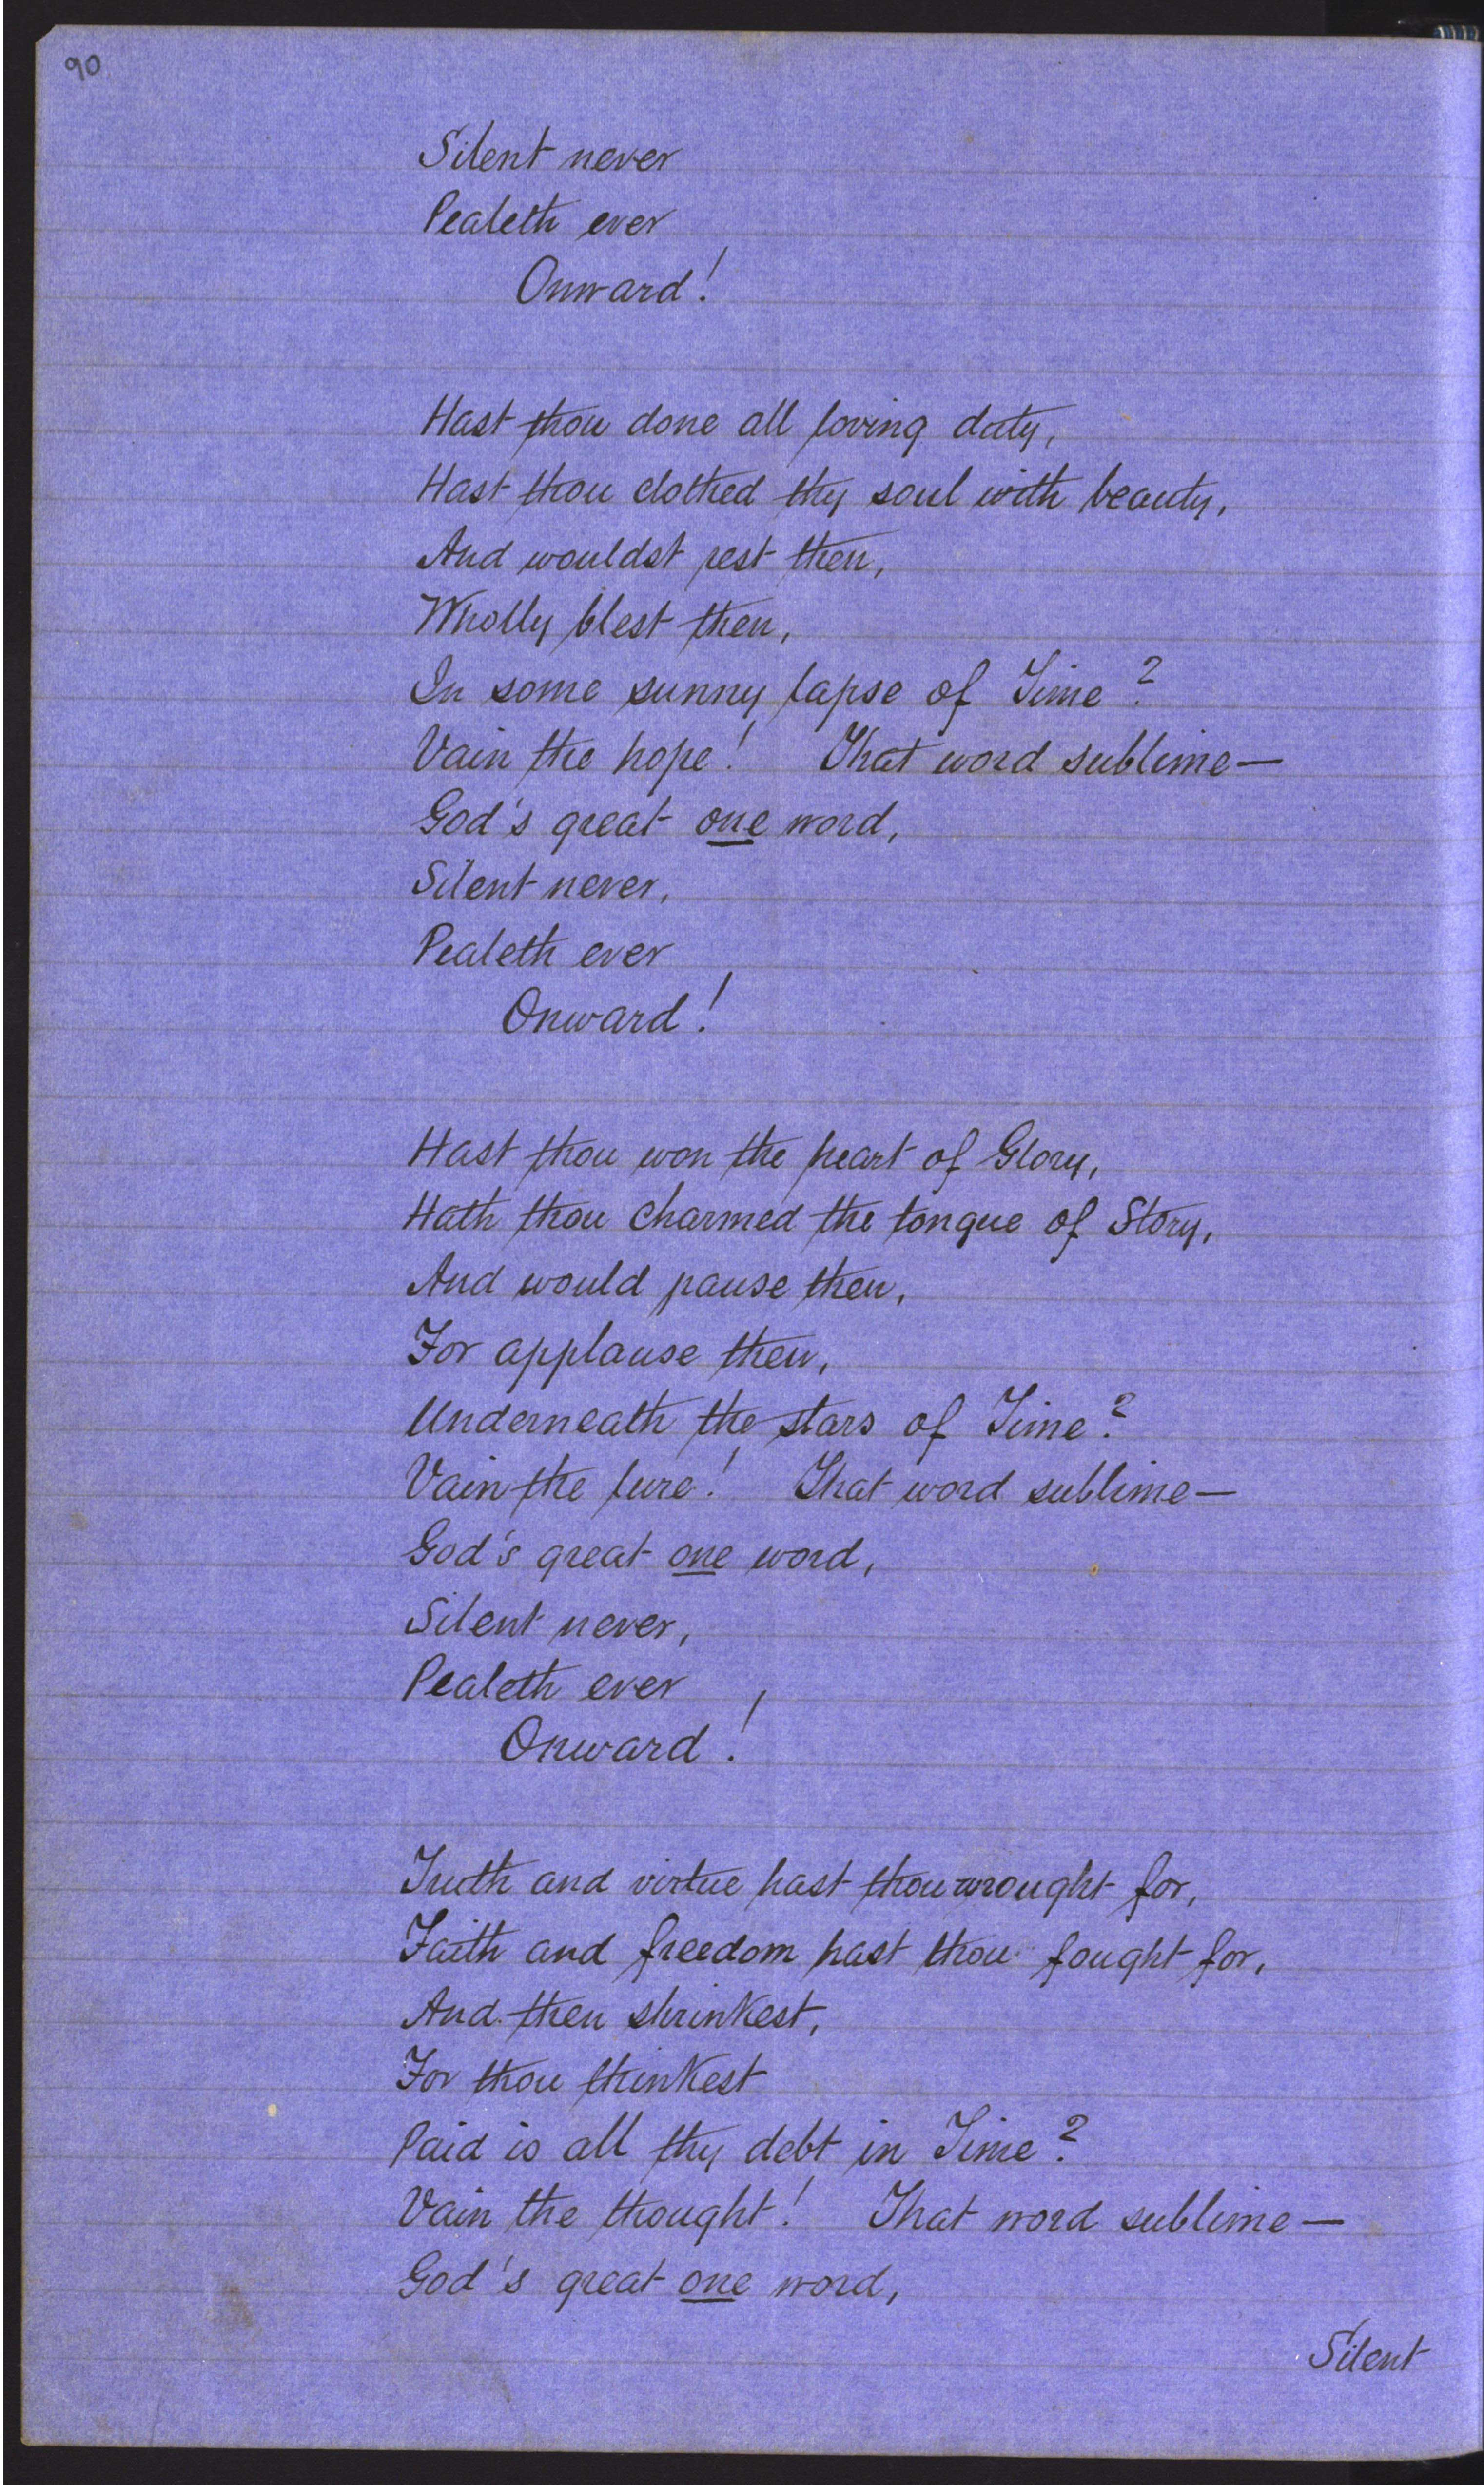 90
Silent never
Pealeth ever
Onward!
Hast thou done all loving duty,
Hast thou clothed thy soul with beauty,
And wouldst rest then,
Wholly blest then,
In some sunny lapse of Time?
Vain the hope! That word sublime—
God's great one word,
Silent never,
Pealeth ever
Onward!
Hast thou won the heart of Glory,
Hath thou charmed the tongue of Story,
And would pause then,
For applause then,
Underneath the stars of Time?
Vain the lure! That word sublime—
God's great one word,
Silent never,
Pealeth ever
Onward!
Truth and virtue hast thou wrought for,
Faith and freedom hast thou fought for,
And then shrinkest,
For thou thinkest
Paid is all thy debt in Time?
Vain the thought! That word sublime—
God's great one word,
Silent